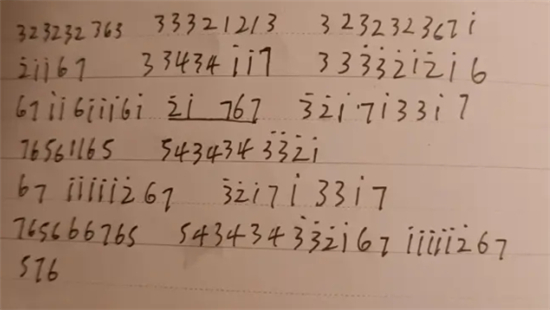 323232763 33321213 32323236 7 i̇
2̇i̇i̇67 33434 i̇i̇7 333̇3̇2̇i̇2̇i̇6
67i̇i̇6i̇i̇i̇6i̇ 2̇i̇ 767 3̇2̇i̇7i̇33i̇7
76561165 543434 3̇3̇2̇i̇
67 i̇i̇i̇i̇i̇2̇67 3̇2̇i̇7i̇33i̇7
765666765 5434343̇3̇2̇i̇67 i̇i̇i̇i̇i̇2̇67
576